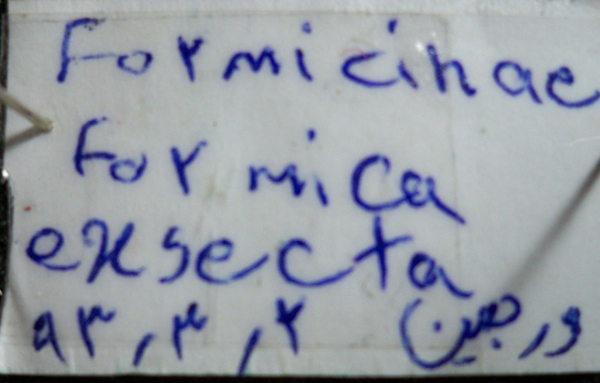 Formicinae
Formica
exsecta
ورجین ۹۳,۳,۲